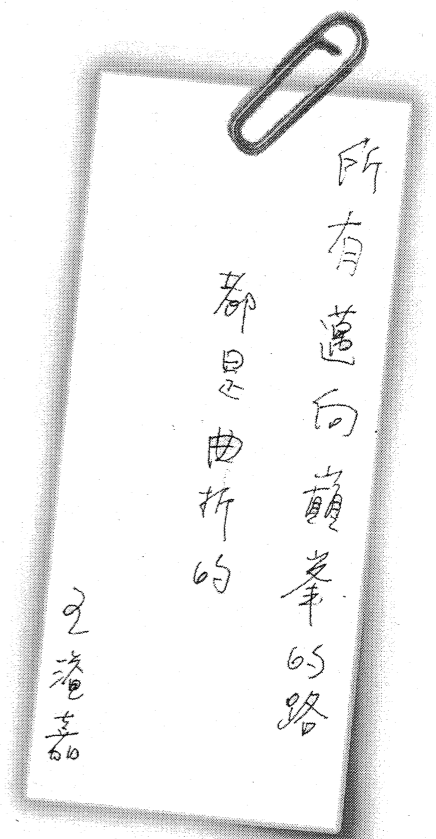 所有邁向巔峯的路
都是曲折的
王溢嘉